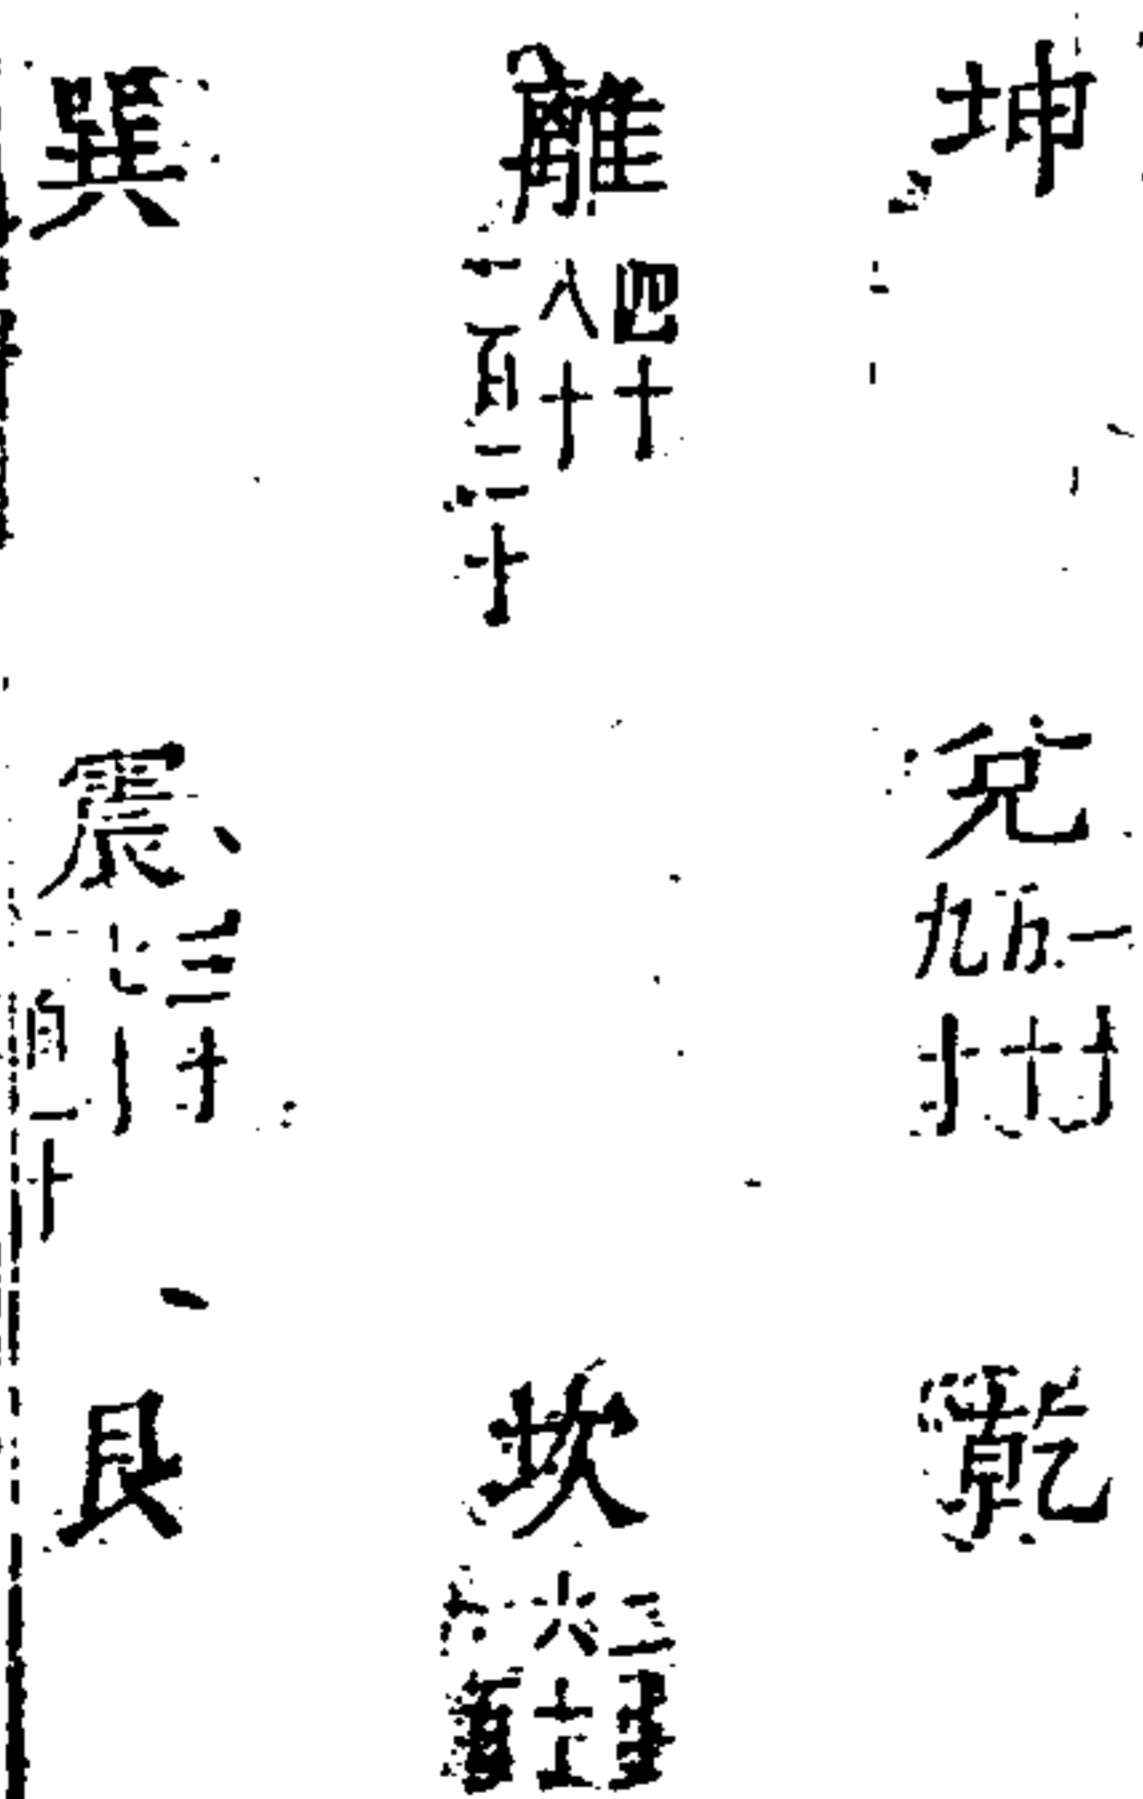 坤
兌
一十
五十
九十
乾
離
四十
八十
一百二十
坎
二十
六十
百
巽
震
三十
七十
一百一十
艮